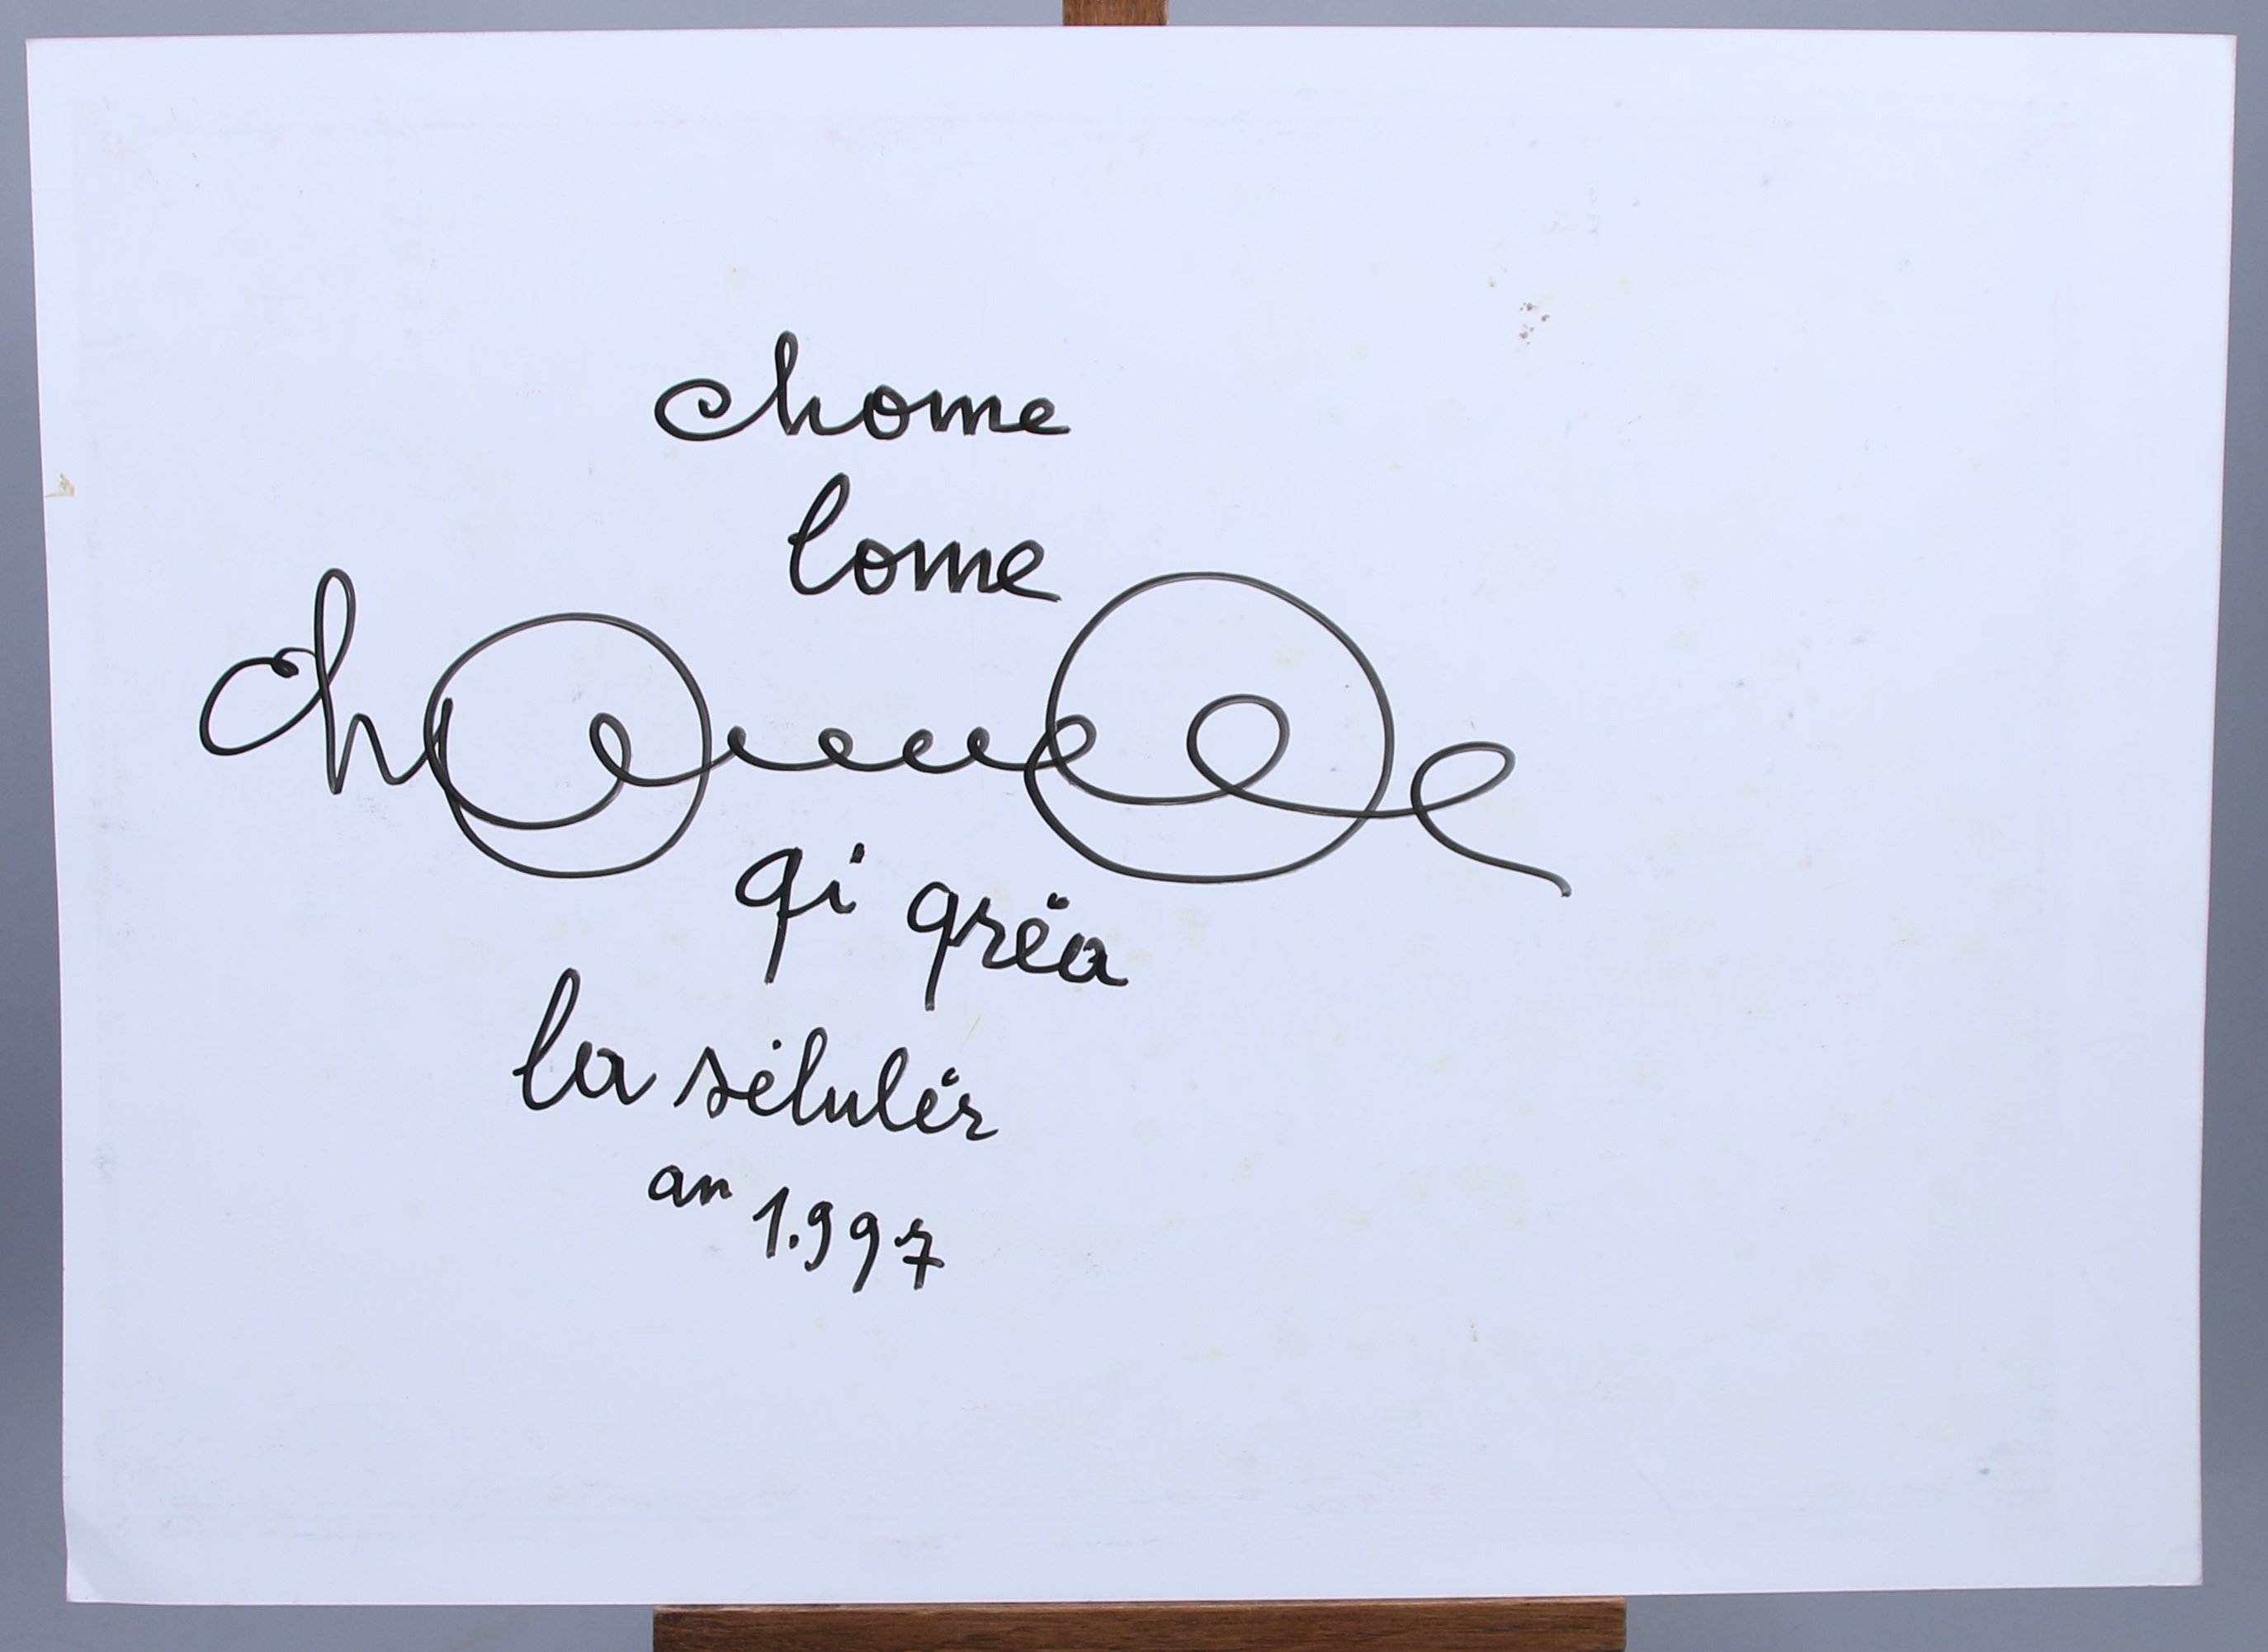 chome
lome
chome
qi qrëa
la sélulér
an 1.997